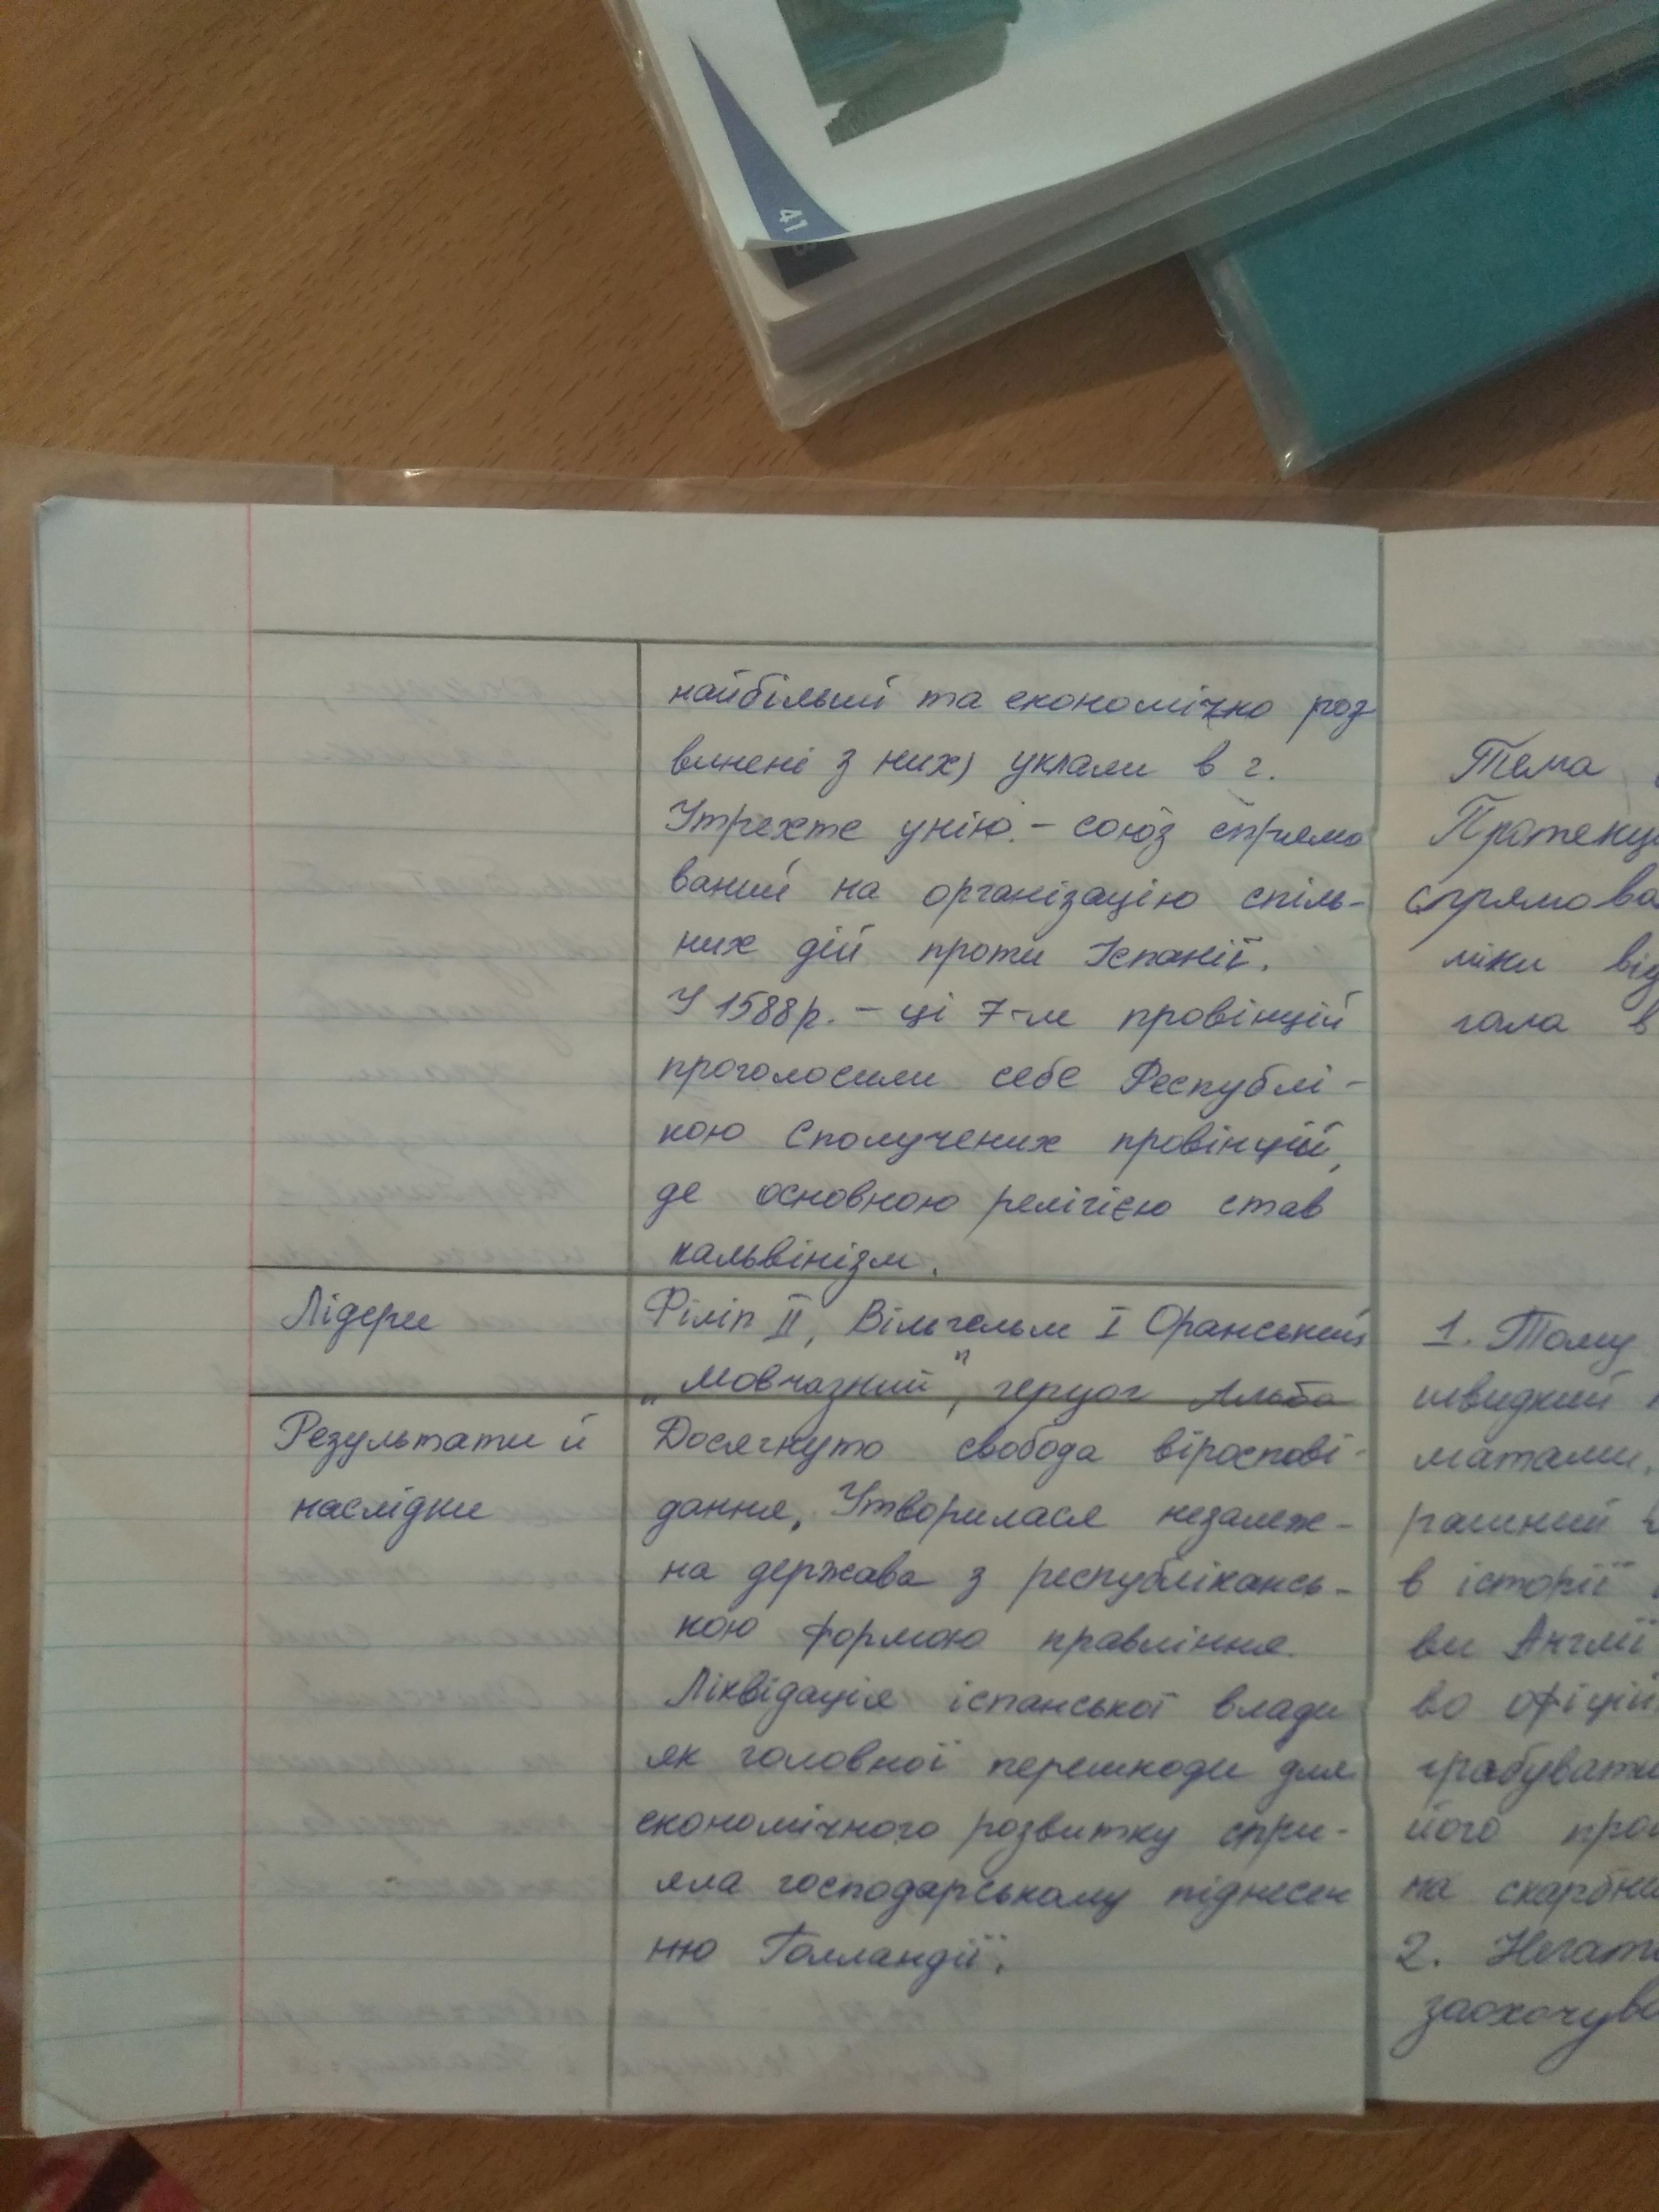 41
найбільший та економічно роз
винені з них) уклали в г.
Утрехте унію. – союз спрямо
ваний на організацію спіль-
них дій проти Іспанії.
У 1588р. – ці 7-м провінцій
проголосили себе Республі-
кою Сполучених провінцій,
де основною релігією став
кальвінізм.
Лідери
Філіп II, Вільгельм I Оранський
„Мовчазний", герцог Альба
Результати й
наслідки
Досягнуто свобода віросповi-
дання. Утворилася незалеж-
на держава з республікансь-
кою формою правління.
Ліквідація іспанської влади
як головної перешкоди для
економічного розвитку спри-
яла господарському піднесен
ню Голландії.
Тема
Протекц
спрямова
ліки від
гала в
1. Тому
швидкий
матами.
рашний
в історії
ви Англії
во офіцій
грабувати
його про
на скарбни
2. Негат
заохочува